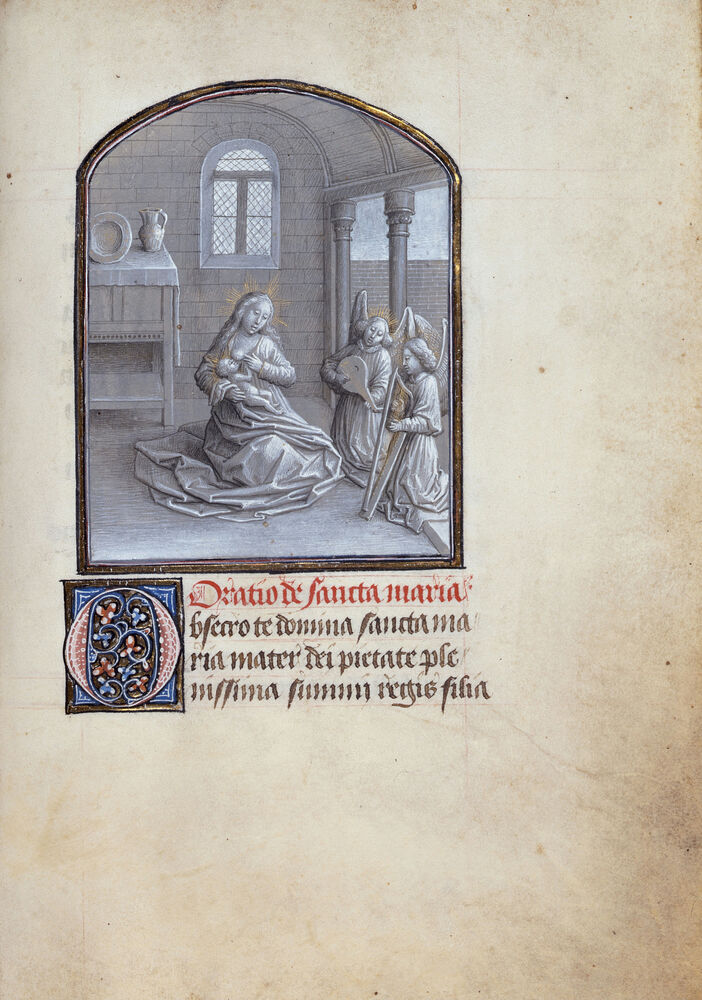 Oratio de sancta maria
Obsecro te domina sancta ma
ria mater dei pietate ple
nissima summi regis filia